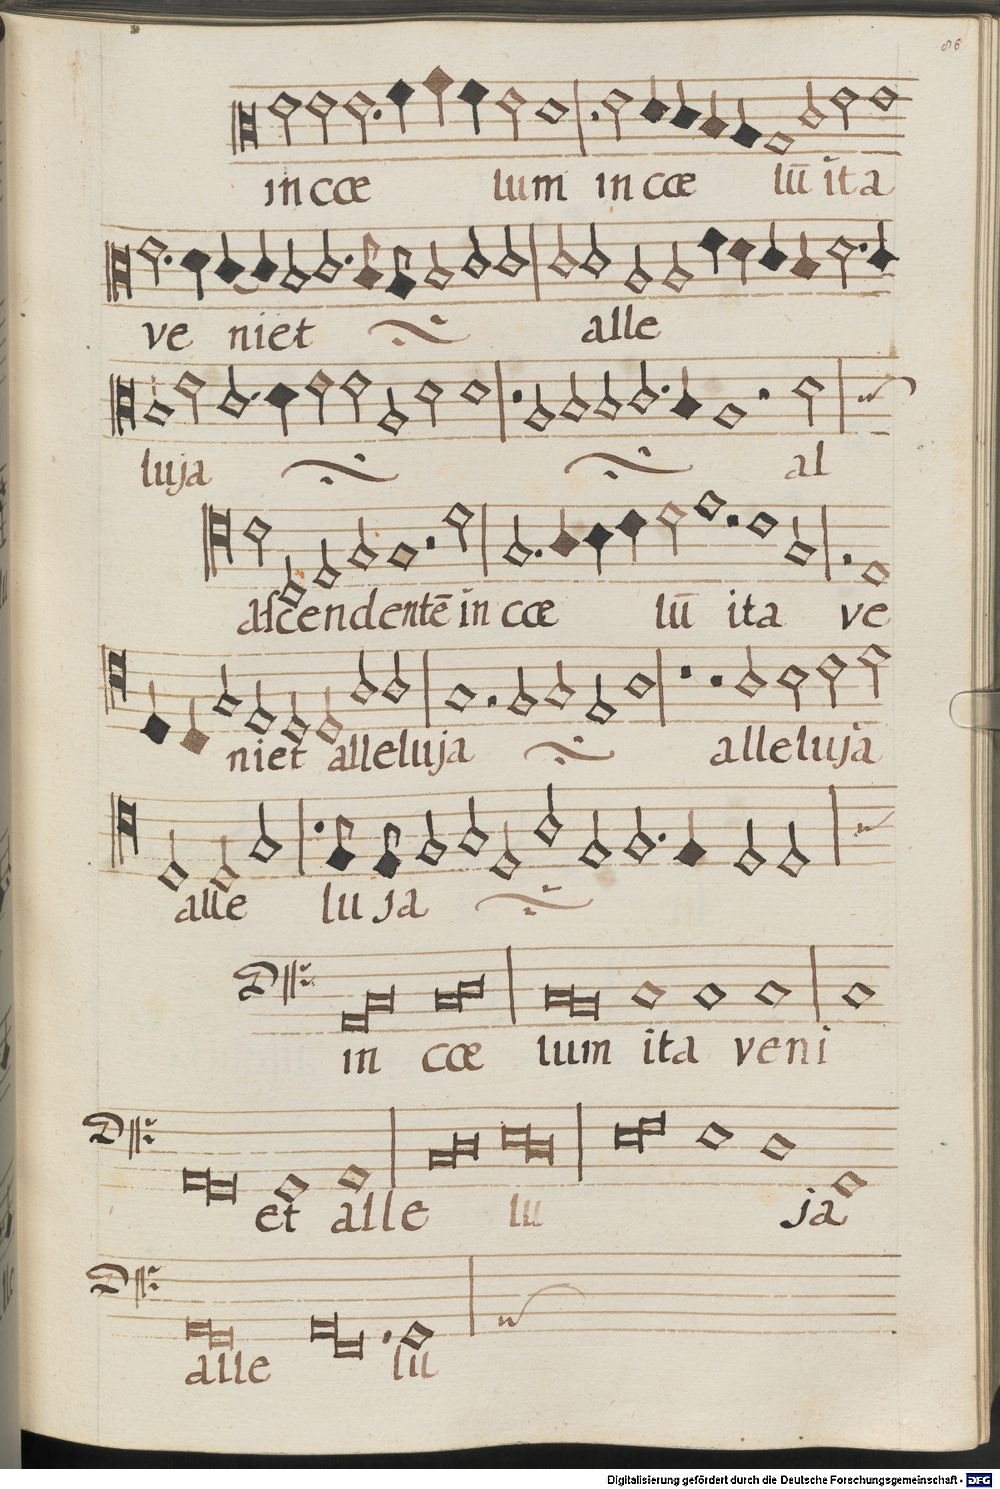 86
in cœ lum in cœ lū ita
ve niet alle
luja al
ascendentē in cœ lū ita ve
niet alleluja alleluja
alle lu ja
in cœ lum ita veni
et alle lu ja
alle lu
Digitalisierung gefördert durch die Deutsche Forschungsgemeinschaft - DFG